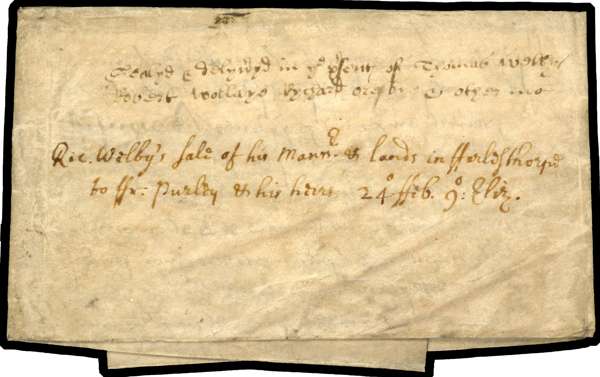 Sealyd & delyvryd in yͤ pͬsents of Thomas
Robert Rychard & other mo
Ric. Welby's sale of his Mannʳ & lands in fforlesthorpe
to ffr: Purley & his heirs 24º ffeb. 9º: Eliz.